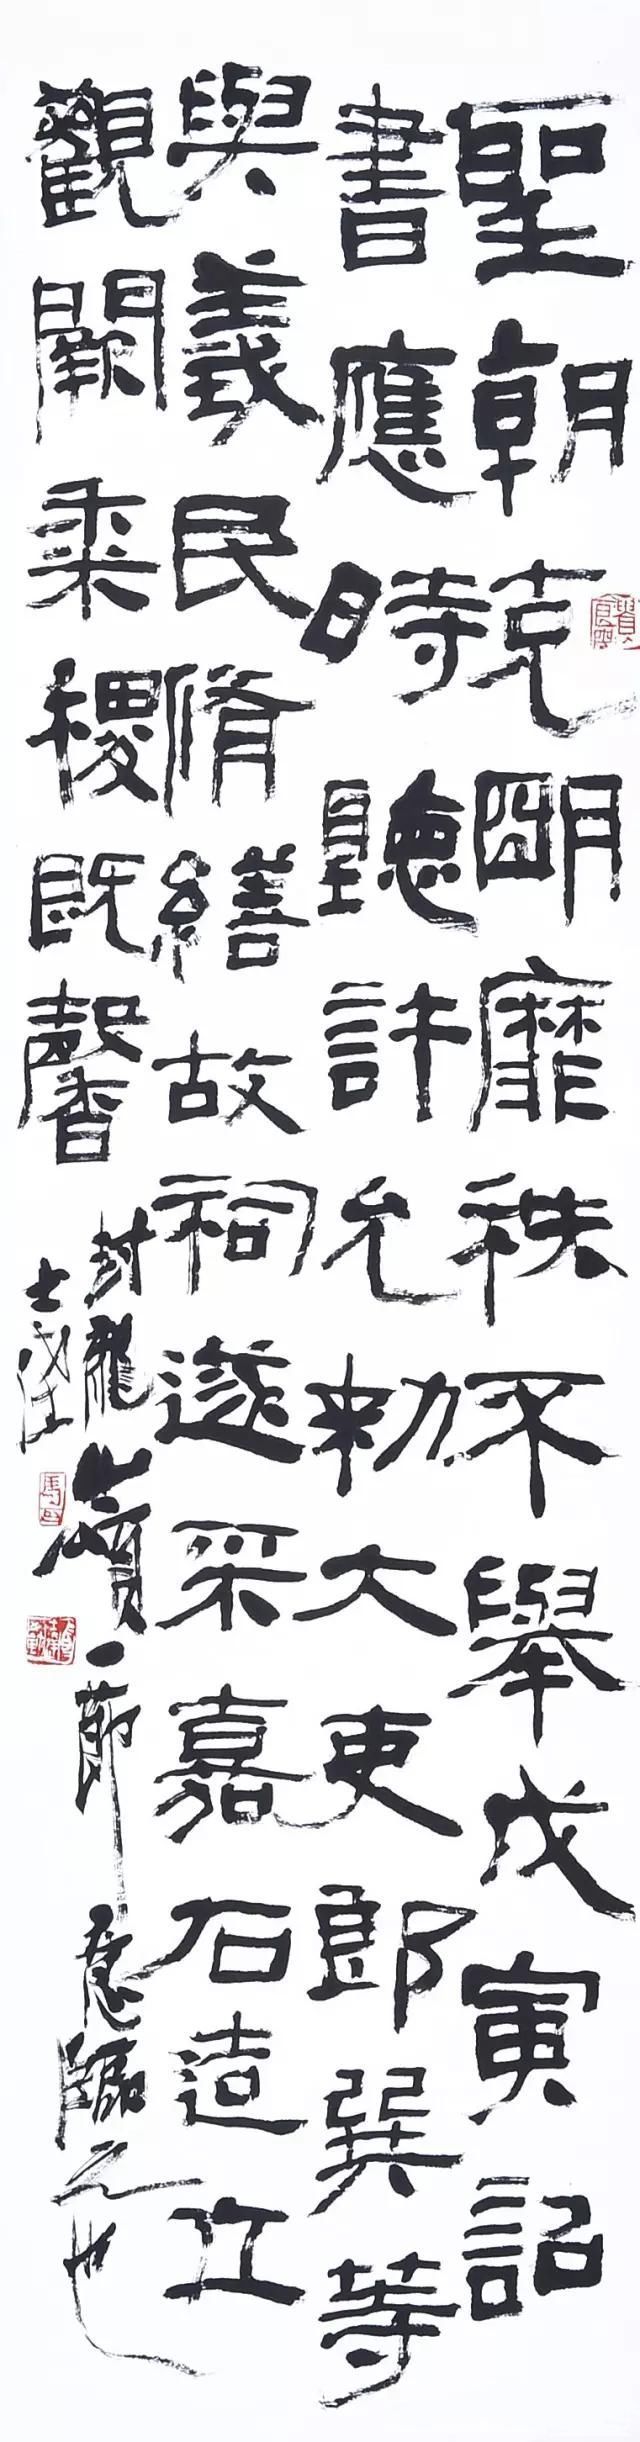 聖朝克朙靡秩不舉戊寅詔
書應時聽許允勅大吏郎巽等
與義民脩繕故祠遂采嘉石造立
觀闕黍稷既馨
封龍山頌一節意臨之也